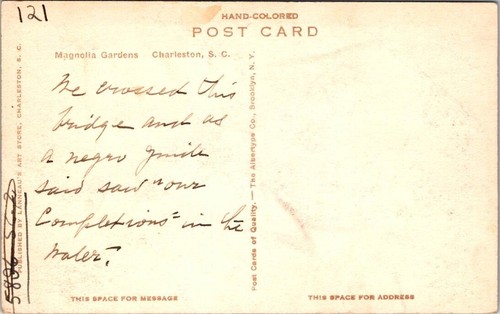 121
HAND-COLORED
POST CARD
Magnolia Gardens Charleston, S. C.
We crossed this
bridge and as
a negro guide
said saw "our
Complections" in the
water.
THIS SPACE FOR MESSAGE
THIS SPACE FOR ADDRESS
PUBLISHED BY LANNEAU'S ART STORE, CHARLESTON, S. C.
Post Cards of Quality. — The Albertype Co., Brooklyn, N. Y.
5806